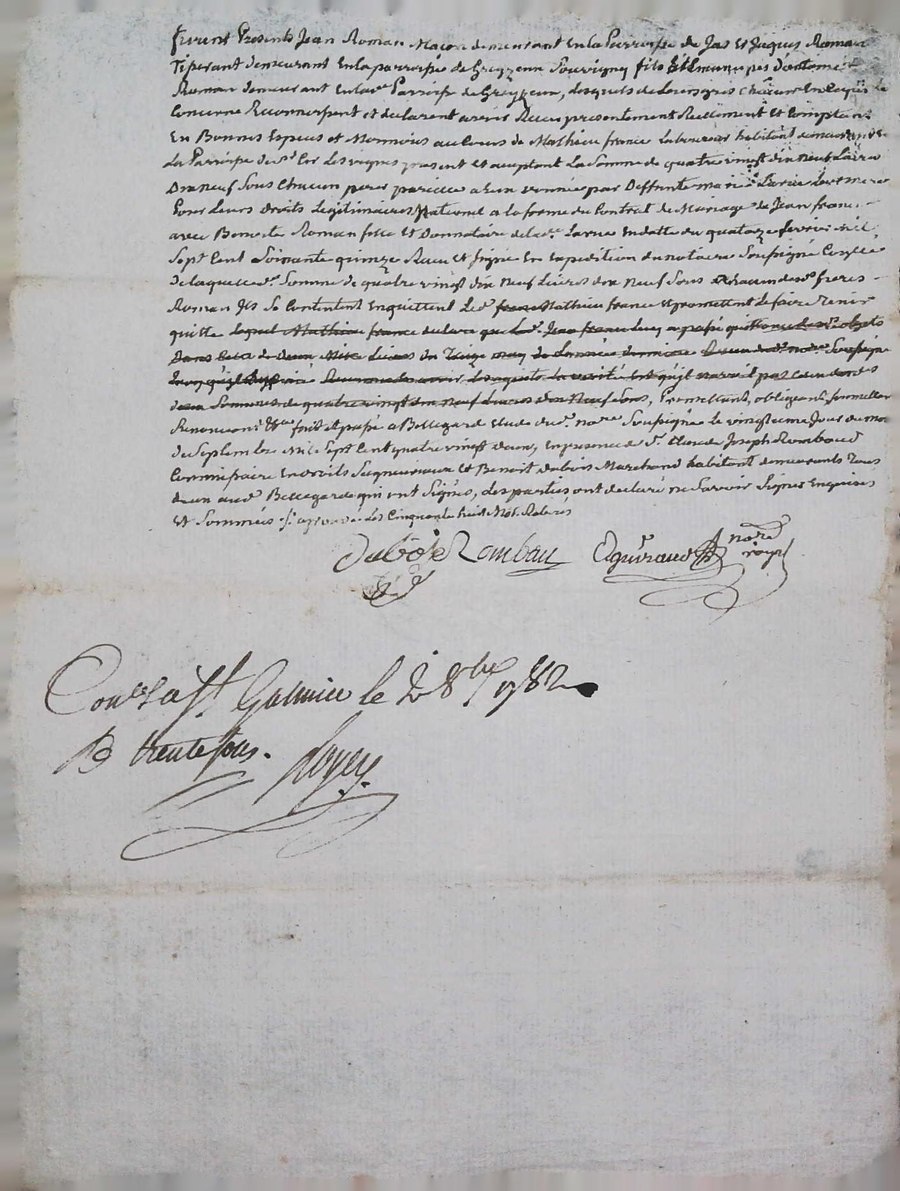 furent Presents Jean Roman Maçon demeurant En la Parroisse de Jas Et Jaques Roman
Tisserant demeurant En la parroisse de Grezieu Souvigny fils
Roman demeurant En lad. Parroisse de Grezieu, desquels de leurs gres Chacun En ce qui Le
Concerne Reconnoissent et declarent avoir Reçu presentement Reellement Et Comptant
En Bonnes Especes et Monnoies au Cours de Mathieu france Laboureur habitant demeurant
La Parroisse de St Cir Les vignes present Et aceptant La Somme de quatre vingt dix Neuf Livres
Dix neuf Sous Chacun pour pareille a Eux donnée par Deffunte marie Larue Leur mere
Pour Leurs Droits Legitimaires Maternel a la forme du Contrat de Mariage de Jean france
avec Benoite Roman fille Et Donnataire de lad. Larue En datte du quatorze fevrier Mil
Sept Cent Soixante quinze Reçu et Signé En Expedition du notaire Soussigné
De laquelle d. Somme de quatre vingt dix Neuf Livres dix Neuf Sous Chacun desd. freres
Roman Se Contentent En quittent Led. france Mathieu france Et promettent Le faire Tenir
quitte Lequel Mathieu france declare que Led. Jean france a passé quittance
Dans Celle de deux Mille Livres du Treize may de L'année derniere Reçue dud. no.re Soussigné
la verité Est qu'il n'avoit pas
Sommes de quatre vingt dix Neuf Livres dix Neuf Sous, Promettant, obligeant, Sermettant
Renonçant &c. fait et passé a Bellegarde Etude du d. no.re Soussigné Le vingt Jour du mois
de Septembre Mil Sept Cent quatre vingt deux, En presence de Sr Claude Joseph Rombaud
Commissaire En droits Seigneuriaux Et Benoit dubois Marchand habitant demeurants Tous
deux aud. Bellegarde qui ont Signés, des parties ont declaré ne Savoir Signer Enquises
Et Sommées approuvé Les Cinquante huit Mots Raturés
Dubois Rombau not.re
royal
Con.lé a St Galmier le 2 8bre 1782
R trente sous.
Royer